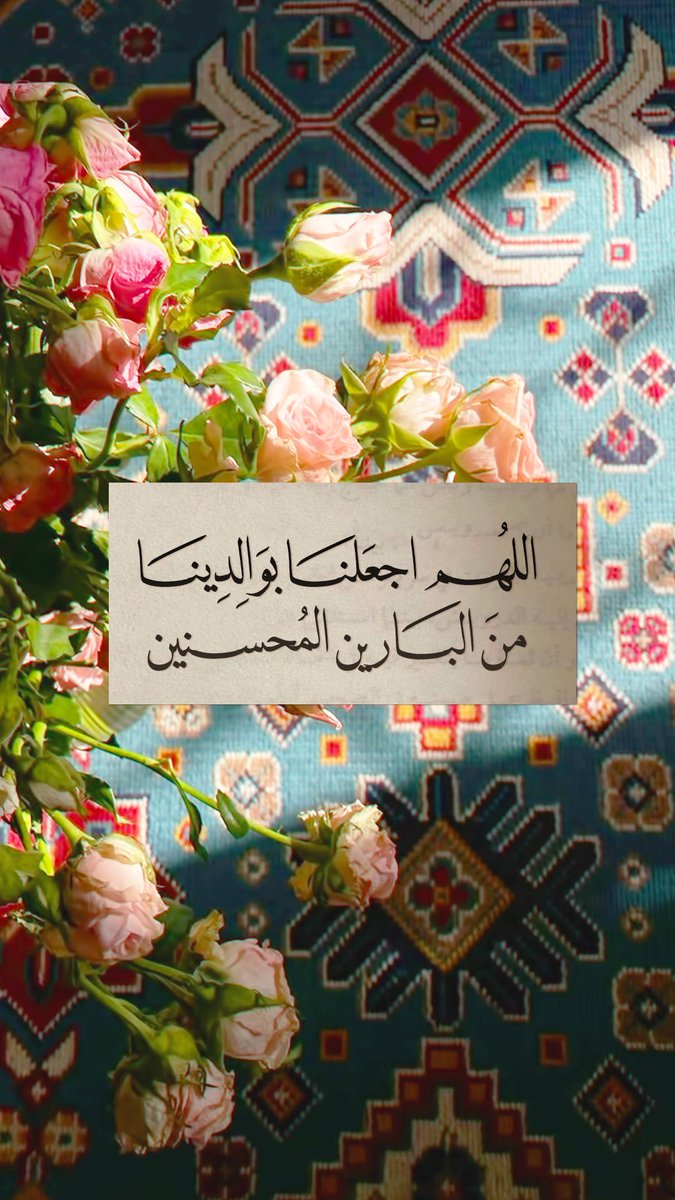 اللهُم اجعَلنَا بوَالِدِينَا
منَ البَارين المُحسنين